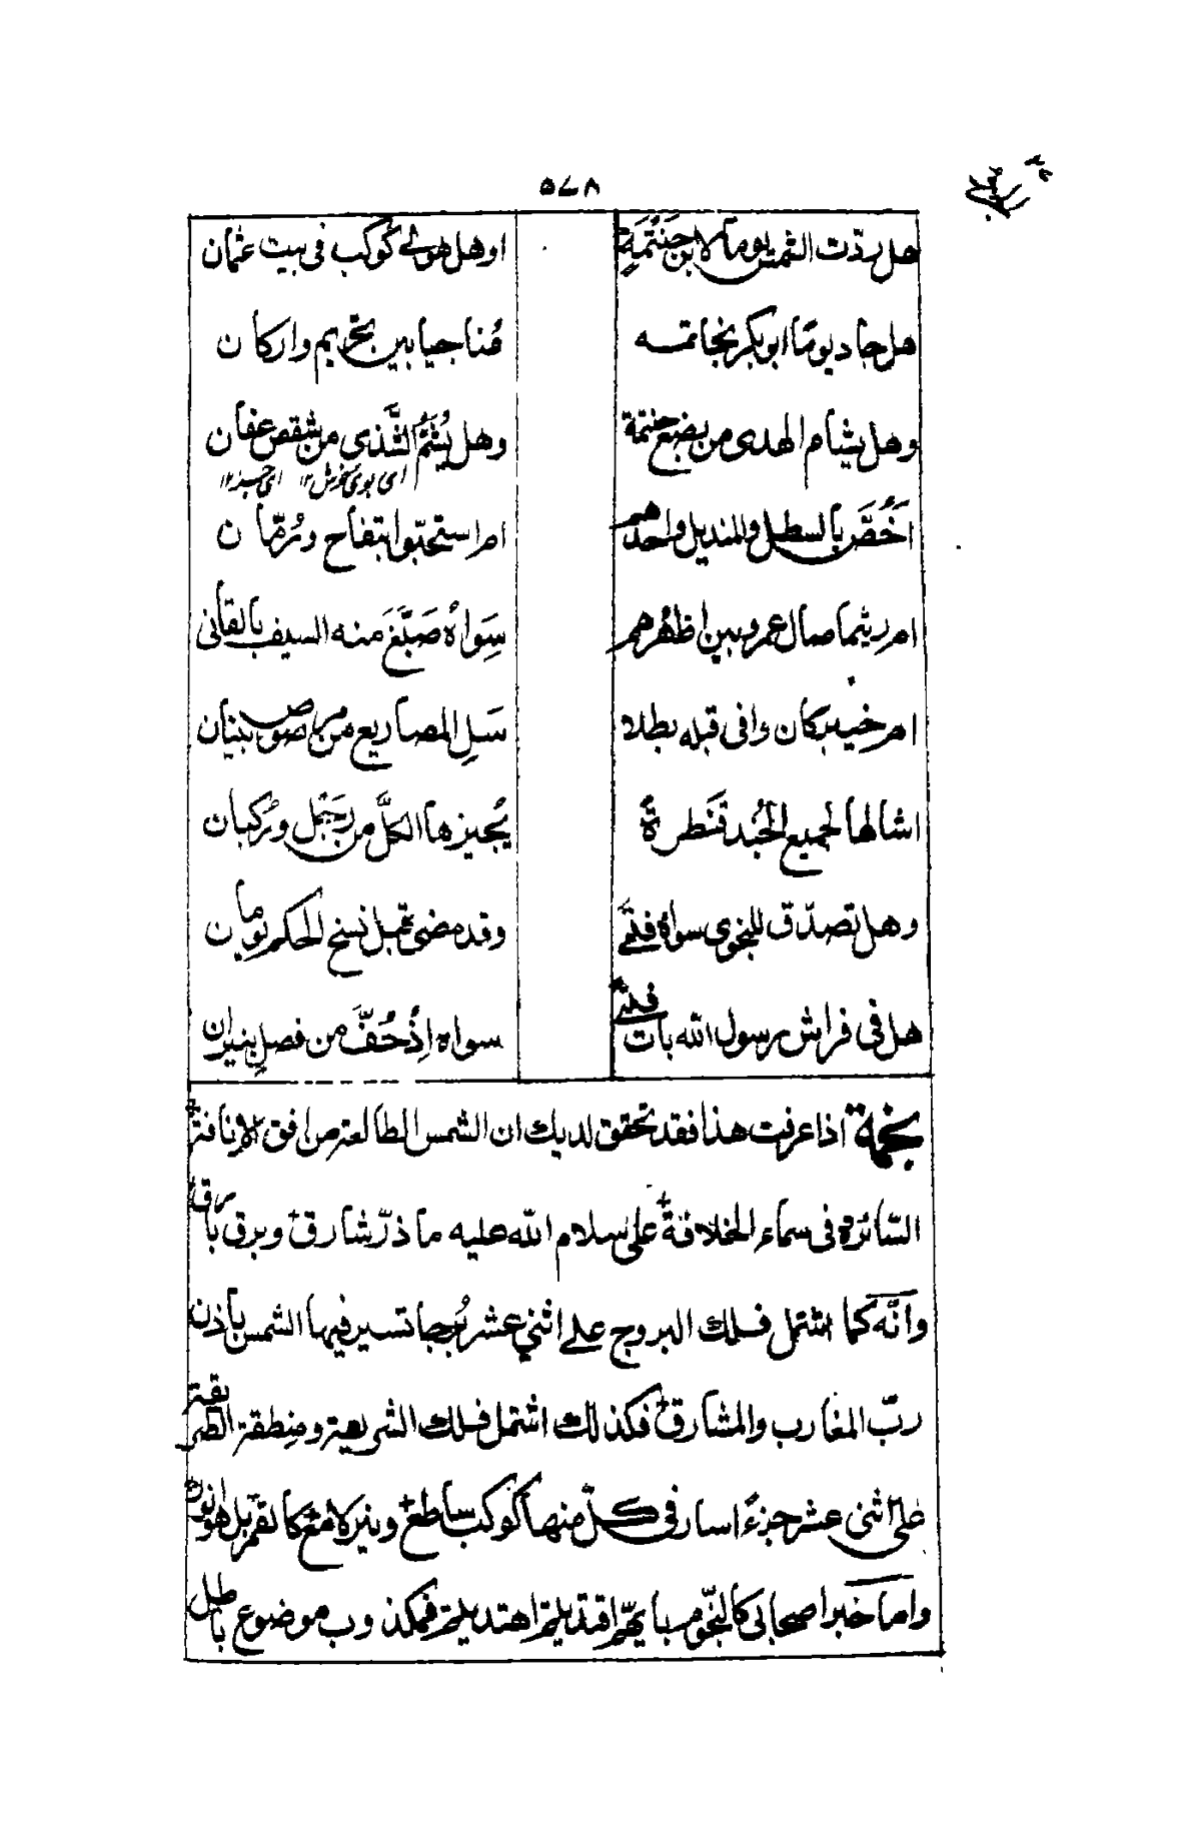 ٥٧٨
هل ردّت الشمس يوما لابن حَنتَمَةٍ اوهل هوى كوكب فى بيت عثمان
هل جاد يومًا ابوبكر بخاتمه مُناجيا بين تحريم واركان
وهل يشام الهدى من بضع حنتمة وهل يُشَمُّ الشَّذى من شقص عفان
اى بوى خوش ١٢
اَخُصَّ بالسطل والمنديل واحدهم ام استحبّوا بتفاح ورُمّان
ام ريثما صال عمرو بين اظهرهم سِواهُ صَبَّغَ منه السيف بالقانى
ام خيبر كان وافى قبله بطلا سَلِ المصاريع من مرصوص بنيان
اشالها لجميع الجُند قَنَطرةً يُجيزها الكلَّ من رَجَلٍ ورُكبان
وهل تصدّق للنجوى سواه فتى وقد مضى قبل نسخ الحكم يومان
هل فى فراش رسول الله بات فتى سواه اِذْ حُفَّ من فصل بنيران
نجمة اذا عرفت هذا فقد تحقق لديك ان الشمس الطالعة من افق الانافة
السّائرة فى سماء الخلافة على سلام الله عليه ما ذرّ شارق وبرق بارق
وانّه كما اشتمل فلك البروج على اثنى عشر بُرجا تسير فيها الشمس باذن
ربّ المغارب والمشارق فكذلك اشتمل فلك الشريعة ومنطقة الطريقة
على اثنى عشر جزءً اسار فى كلّ منها كوكب ساطع ونير لامع كالقمر بل هو انور
واما خبر اصحابى كالنّجوم بايهّم اقتديتم اهتديتم فمكذوب موضوع باطل